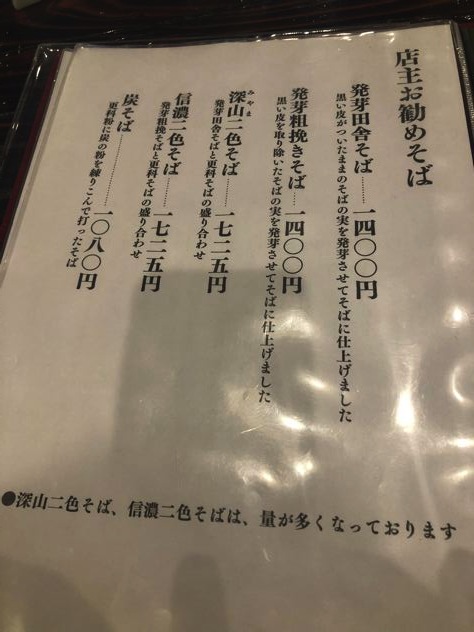 店主お勧めそば
発芽田舎そば………一四〇〇円
黒い皮がついたままのそばの実を発芽させてそばに仕上げました
発芽粗挽きそば……一四〇〇円
黒い皮を取り除いたそばの実を発芽させてそばに仕上げました
みやま
深山二色そば………一七二五円
発芽田舎そばと更科そばの盛り合わせ
信濃二色そば………一七二五円
発芽粗挽そばと更科そばの盛り合わせ
炭そば………………一〇八〇円
更科粉に炭の粉を練りこんで打ったそば
●深山二色そば、信濃二色そばは、量が多くなっております